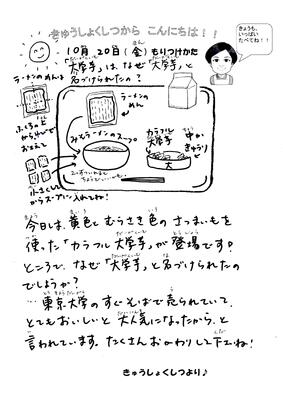 きゅうしょくしつから こんにちは！！
きょうも、
いっぱい
たべてね！！
10月20日(金) もりつけかた
「大学芋」は、なぜ「大学芋」と
名づけられたの？
ラーメンのめんは
ラーメンの
めん
みそラーメンのスープ
カラフル
大学芋
中か
きゅうり
大
小
からスープに入れてね！
今日は、黄色とむらさき色のさつまいもを
使った「カラフル大学芋」が登場です。
ところで、なぜ「大学芋」と名づけられたの
でしょうか？
…東京大学のすぐそばで売られていて、
とてもおいしいと大人気になったから、と
言われています。たくさんおかわりして下さいね！
きゅうしょくしつより♪